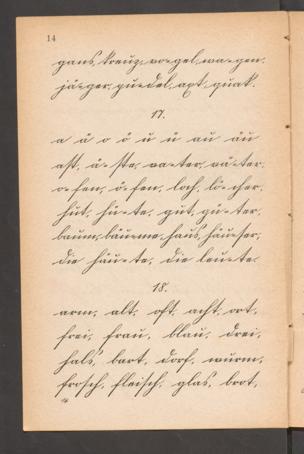 14
gans, kreuz, vo-gel, wa-gen,
jä-ger, pu-del, axt, quak.
17.
a ä o ö u ü au äu
ast, ä-ste, va-ter, vä-ter,
o-fen, ö-fen, loch, lö-cher,
hut, hü-te, gut, gü-ter,
baum, bäu-me, haus, häu-ser,
die häu-te, die leu-te.
18.
arm, alt, oft, acht, ort,
frei, frau, blau, drei,
hals, bart, dorf, wurm,
frosch, fleisch, glas, brot,